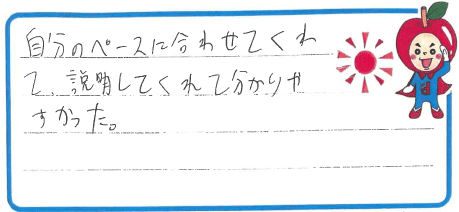 自分のペースに合わせてくれ
て、説明してくれて分かりや
すかった。